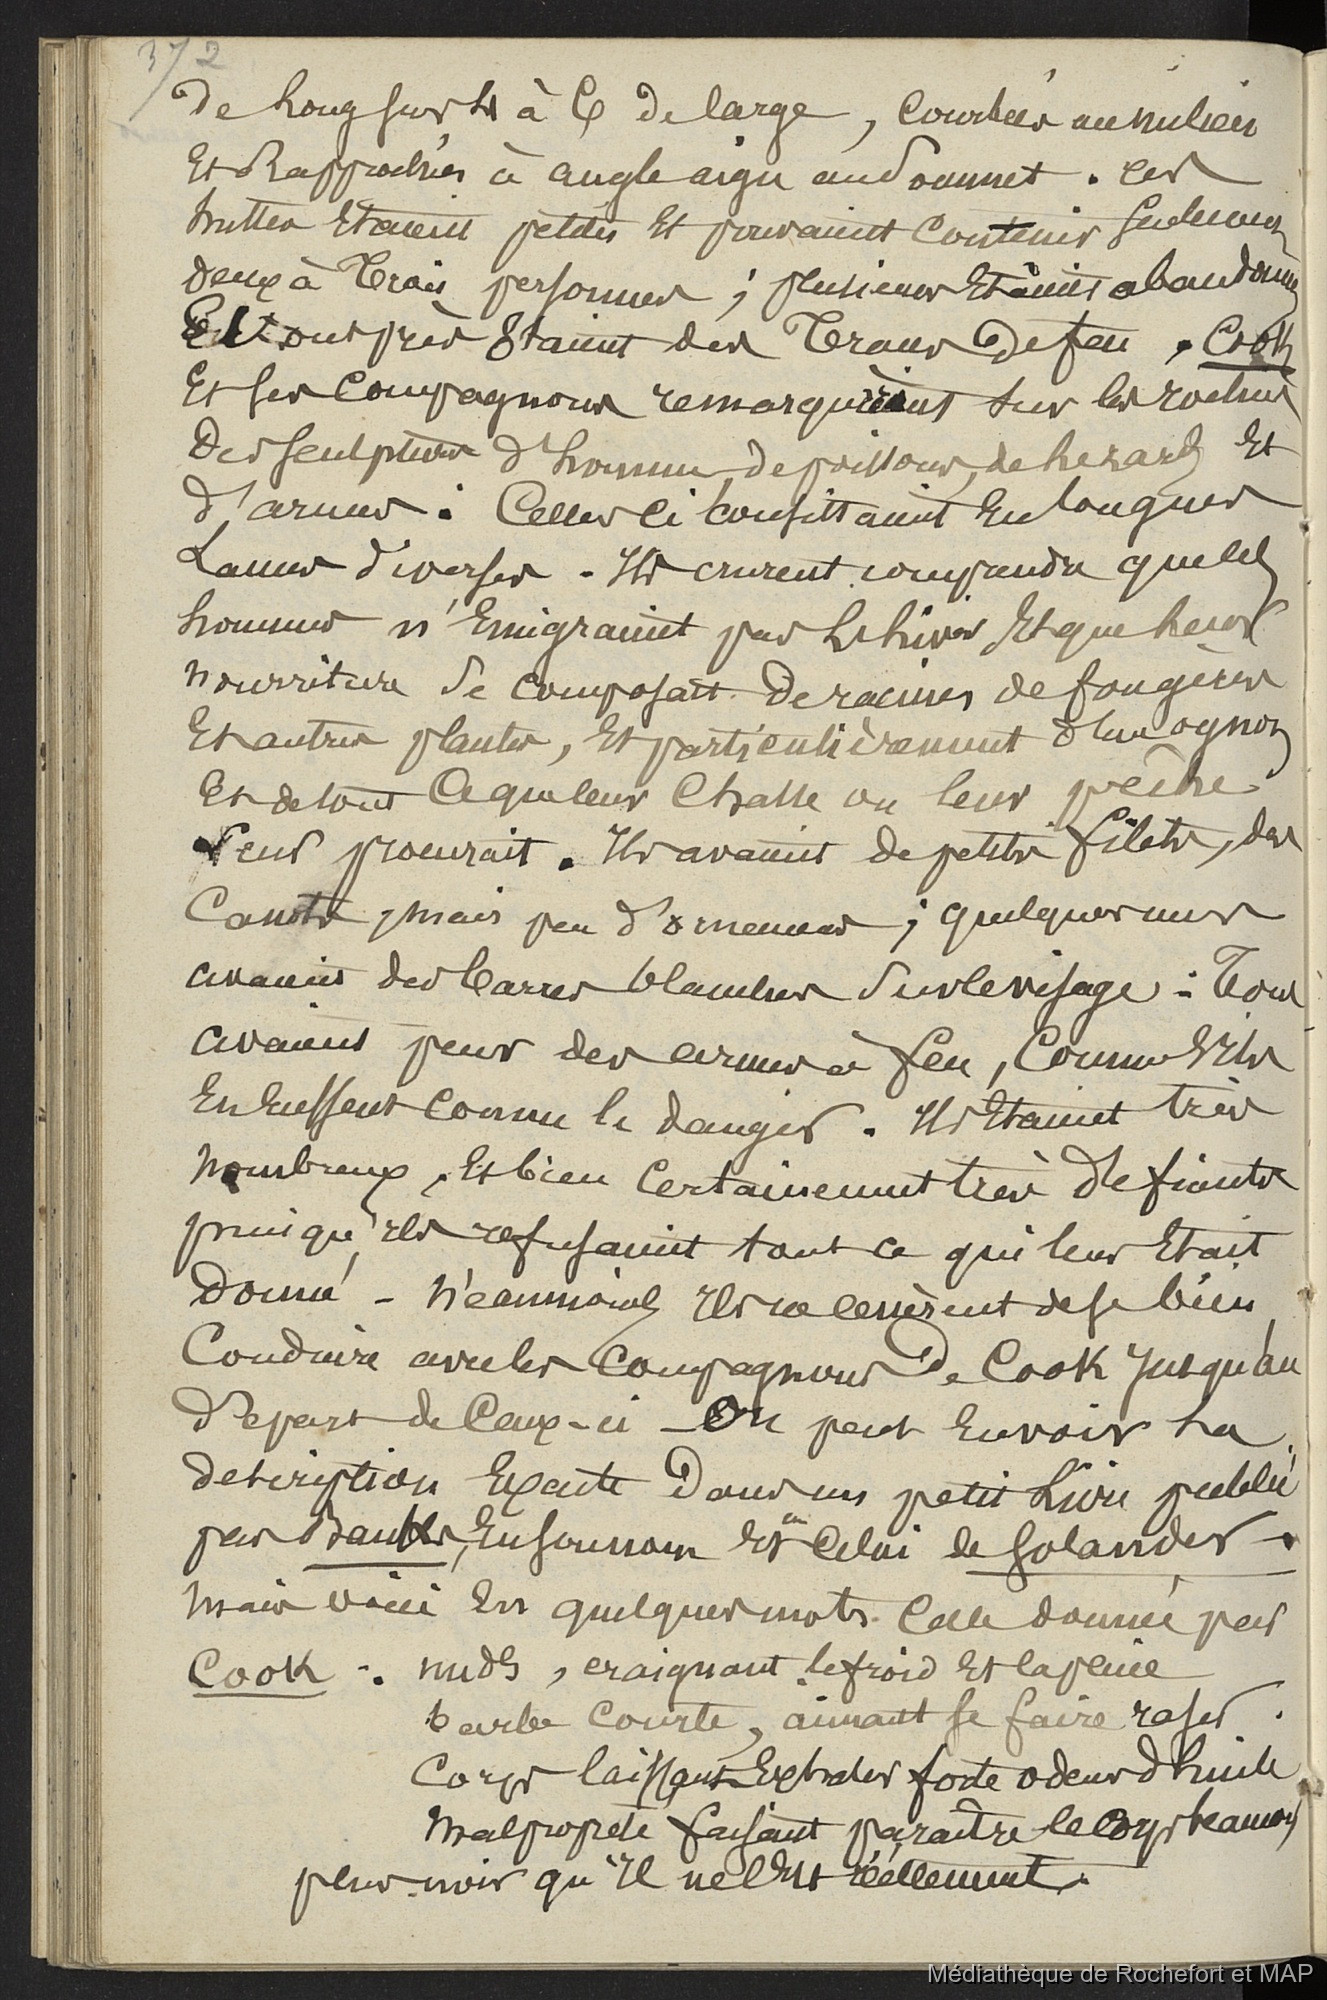 372
de long sur 4 à 6 de large, courbées au milieu
Et Rapprochées à angle aigu au Sommet. ces
huttes Etaient petites Et pouvaient Contenir Seulement
deux à trois personnes ; plusieurs Etaient abandonnés
Et tout près Etaient des Traces de feu. Cook
Et ses Compagnons remarquèrent sur les rochers
Des sculptures d'homme, de poissons, de lezards Et
d'armes : Celles ci Consistaient En longues
Lames diverses. Ils crurent comprendre que les
hommes n'Emigraient pas l'hiver Et que leur
nourriture Se composait de racines de fougères
Et autres plantes, Et particulièrement d'un ognon
Et de tout Ce que leur Chasse ou leur pêche
leur procurait. Ils avaient de petits filets, des
Canots, mais peu d'ornemens ; quelques uns
avaient des barres blanches Sur le visage : Tous
avaient peur des armes à feu, Comme S'ils
En Eussent connu le danger. Ils Etaient très
nombreux, Et bien Certainement très défiants
puisqu'ils refusaient tout ce qui leur Etait
donné - Néanmoins Ils ne cessèrent de se bien
Conduire avec les Compagnons De Cook Jusqu'au
départ de Ceux-ci - On peut En voir la
description Exacte Dans un petit Livre publié
par Banks, En son nom Et en Celui de Solander.
Mais voici En quelques mots Celle donnée par
Cook : nuds, craignant le froid Et la pluie
barbe Courte, aimant se faire raser.
Corps laissant Exhaler forte odeur d'huile
Malpropreté faisant paraître le Corps beaucoup
plus noir qu'Il ne l'Est réellement.
Médiathèque de Rochefort et MAP